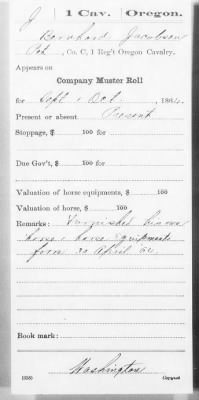 J | 1 Cav. | Oregon.
Bernhard Jacobson
Pvt, Co. C, 1 Reg't Oregon Cavalry.
Appears on
Company Muster Roll
for Sept & Oct, 1864.
Present or absent Present
Stoppage, $ 100 for
Due Gov't, $ 100 for
Valuation of horse equipments, $ 100
Valuation of horse, $ 100
Remarks: Furnished his own
horse & horse equipments
from 30 April 64.
Book mark:
Washington
(858)
Copyist.